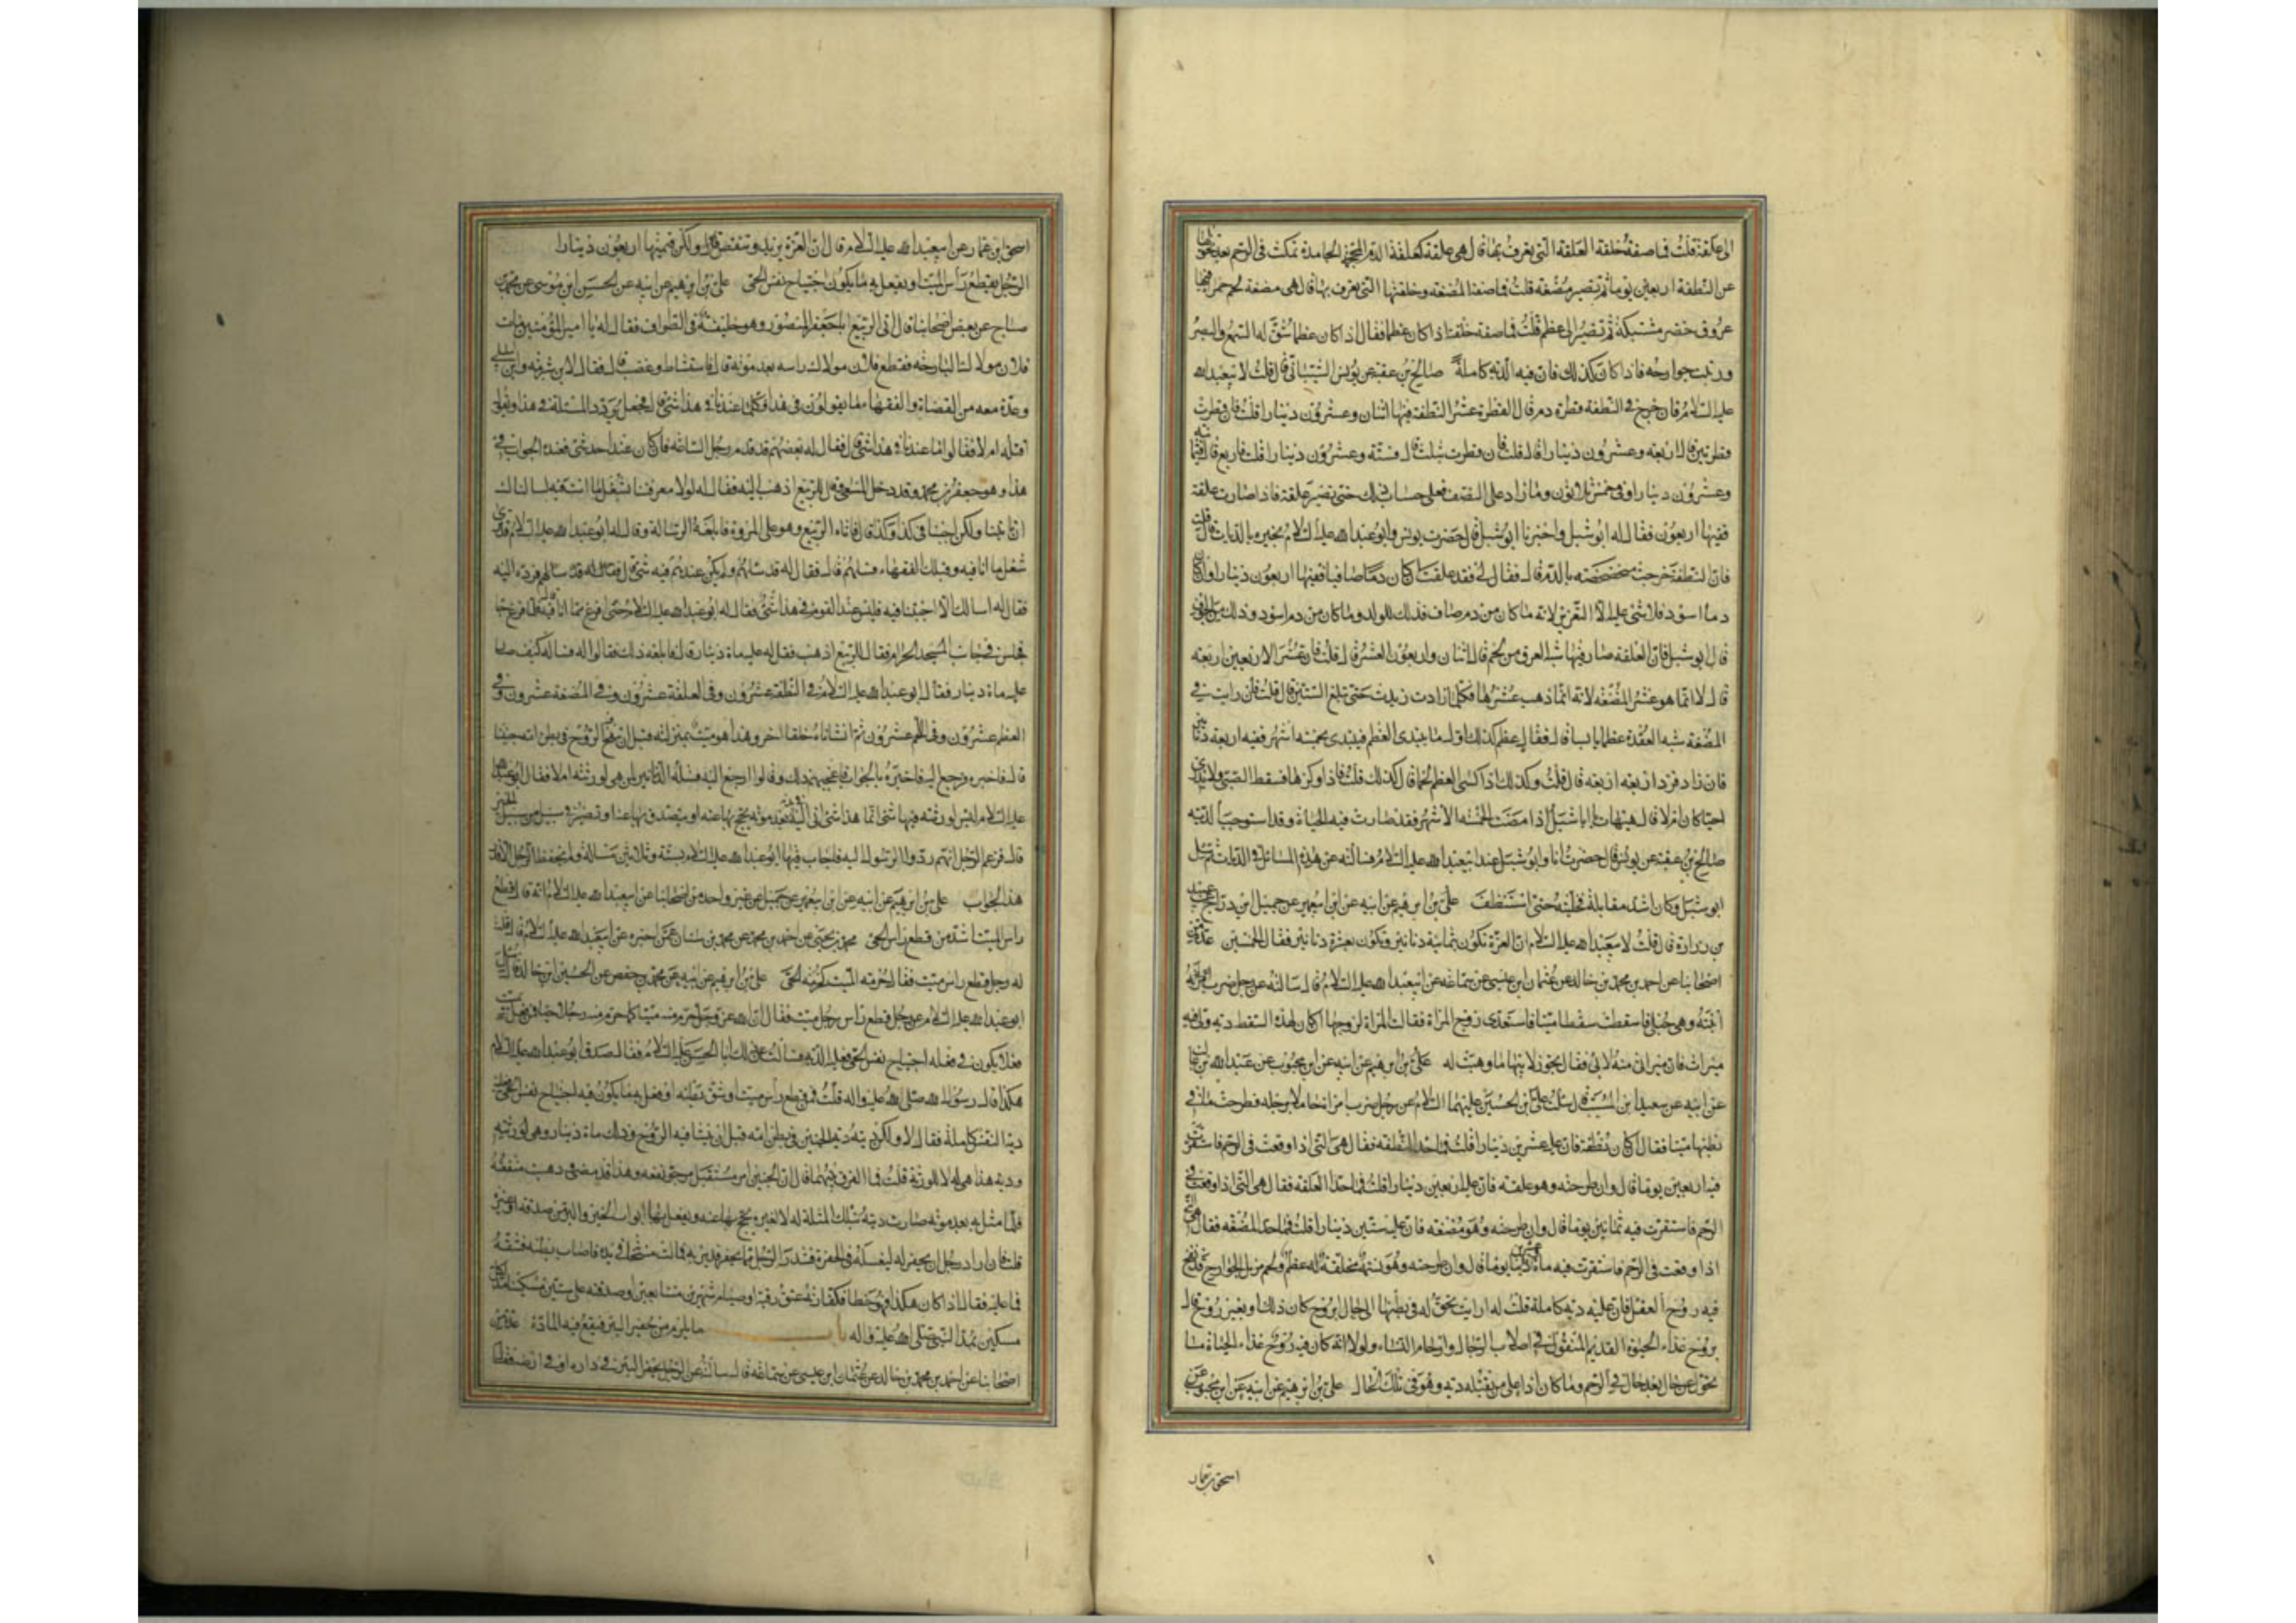 الى علقة قلت فما صفة خلقة العلقة التى يعرف بها قال هى علقة كعلقة الدم المحجمة الجامدة تمكث فى الرحم بعد تحويلها
عن النطفة اربعين يوما ثم تصير مضغة قلت فما صفة المضغة وخلقتها التى يعرف بها قال هى مضغة لحم حمراء فيها
عروق خضر مشتبكة ثم تصير الى عظم قلت فما صفة خلقته اذا كان عظما فقال اذا كان عظما شق له السمع والبصر
ورتبت جوارحه فاذا كان كذلك فان فيه الدية كاملة صالح بن عقبة عن يونس الشيبانى قال قلت لابيعبدالله
عليه السلام فان خرج فى النطفة قطرة دم قال القطرة عشر النطفة فيها اثنان وعشرون دينارا قلت فان قطرت
قطرتين قال اربعة وعشرون دينارا قال قلت فان قطرت بثلث قال فستة وعشرون دينارا قلت فاربع قال فثمانية
وعشرون دينارا وفى خمس ثلاثون وما زاد على النصف فعلى حساب ذلك حتى تصير علقة فاذا صارت علقة
ففيها اربعون فقال له ابوشبل واخبرنا ابوشبل قال حضرت يونس وابوعبدالله عليه السلام يخبره بالديات قال قلت
فان النطفة خرجت متخضخضة بالدم قال فقال لى فقد علقت ان كان دما صافيا ففيها اربعون دينارا وان كان
دما اسود فلا شئ عليه الا التعزير لانه ما كان من دم صاف فذلك للولد وما كان من دم اسود فذلك من الجوف
قال ابوشبل فان العلقة صار فيها شبه العرق من لحم قال اثنان واربعون العشر قال قلت فان عشر الاربعين اربعة
قال لا انما هو عشر المضغة لانه انما ذهب عشرها فكلما زادت زيد حتى تبلغ الستين قال قلت فان رايت فى
المضغة شبه العقدة عظما يابسا قال فقال عظم كذلك اول ما يبتدى العظم فيبتدى بخمسة اشهر ففيه اربعة دنانير
فان زاد فزد اربعة اربعة قال قلت وكذلك اذا كسى العظم لحما قال كذلك قلت فاذا وكزها فسقط الصبى ولا يدرى
احيا كان ام لا قال هيهات يا اباشبل اذا مضت الخمسة الاشهر فقد صارت فيه الحياة وقد استوجب الدية
صالح بن عقبة عن يونس قال حضرت انا وابوشبل عند ابيعبدالله عليه السلام فسالته عن هذه المسائل فى الديات ثم سئل
ابوشبل وكان اشد مقابلة فخليته حتى استنظف على بن ابرهيم عن ابيه عن ابن ابيعمير عن جميل ابن دراج عن عبيد
بن زرارة قال قلت لابيعبدالله عليه السلام ان الغرة تكون بثمانية دنانير وتكون بعشرة دنانير فقال بخمسين عدة من
اصحابنا عن احمد بن محمد بن خالد عن عثمان ابن عيسى عن سماعة عن ابيعبدالله عليه السلام قال سالته عن رجل ضرب ابنته
وهى حبلى فاسقطت سقطا ميتا فاستعدى زوج المراة فقالت المراة لزوجها ان كان لهذا السقط دية ولى فيه
ميراث فان ميراثى منه لابى فقال يجوز لابيها ما وهبت له على بن ابرهيم عن ابيه عن ابن محبوب عن عبدالله بن غالب
عن ابيه عن سعيد ابن المسيب قال سئلت على بن الحسين عليهما السلام عن رجل ضرب امراة حاملا برجله فطرحت ما فى
بطنها ميتا فقال ان كان نطفة فان عليه عشرين دينارا قلت فما حد النطفة فقال هى التى اذا وقعت فى الرحم فاستقرت
فيه اربعين يوما قال وان طرحته وهو علقة فان عليه اربعين دينارا قلت فما حد العلقة فقال هى التى اذا وقعت فى
الرحم فاستقرت فيه ثمانين يوما قال وان طرحته وهو مضغة فان عليه ستين دينارا قلت فما حد المضغة فقال هى التى
اذا وقعت فى الرحم فاستقرت فيه مائة وعشرين يوما قال وان طرحته وهو نسمة مخلقة له عظم ولحم مزيل الجوارح قد نفخ
فيه روح العقل فان عليه دية كاملة قلت له ارايت تحوله فى بطنها الى حال ابروح كان ذلك او بغير روح قال
بروح غذاء الحيوة القديم المنقول فى اصلاب الرجال وارحام النساء ولولا انه كان فيه روح غذاء الحياة ما
تحول عن حال بعد حال فى الرحم وما كان اذا على من يقتله دية وهو فى تلك الحال على بن ابرهيم عن ابيه عن ابن محبوب عن
اسحق بن عمار
اسحق بن عمار عن ابيعبدالله عليه السلام قال ان الغرة يزيد وتنقص ولكن قيمتها اربعون دينارا
الرجل يقطع راس الميت او يفعل به ما يكون اجتياح نفس الحى على بن ابرهيم عن ابيه عن الحسين ابن موسى عن محمد بن
صباح عن بعض اصحابنا قال اتى الربيع اباجعفر المنصور وهو خليفة فى الطواف فقال له يا امير المؤمنين مات
فلان مولاك البارحة فقطع فلان مولاك راسه بعد موته قال فاستشاط وغضب قال فقال لابن شبرمة وابن ابى ليلى
وعدة معه من القضاة والفقهاء ما تقولون فى هذا فكل قال ما عندنا فى هذا شئ قال فجعل يردد المسئلة فى هذا ويقول
اقتله ام لا فقالوا ما عندنا فى هذا شئ قال فقال له بعضهم قد قدم رجل الساعة فان كان عند احد شئ فعنده الجواب فى
هذا وهو جعفر بن محمد وقد دخل المسعى فقال للربيع اذهب اليه فقال له لولا معرفتنا بشغل ما انت فيه لسالناك
ان تاتينا ولكن اجبنا فى كذا وكذا قال فاتاه الربيع وهو على المروة فابلغه الرسالة وقال له ابوعبدالله عليه السلام قد ترى
شغل ما انا فيه وقبلك الفقهاء فسلهم قال فقال له قد سالهم ولم يكن عندهم فيه شئ قال فقال له قد سالهم فرده اليه
فقال له اسالك الا اجبتنا فيه فليس عند القوم فى هذا شئ فقال له ابوعبدالله عليه السلام حتى افرغ مما انا فيه فلما فرغ جاء
فجلس فى جانب المسجد الحرام فقال للربيع اذهب فقل له عليه ماة دينار قال فابلغه ذلك فقالوا له فساله كيف صار
عليه ماة دينار فقال ابوعبدالله عليه السلام فى النطفة عشرون وفى العلقة عشرون وفى المضغة عشرون وفى
العظم عشرون وفى اللحم عشرون ثم انشاناه خلقا اخر وهذا هو ميت بمنزلته قبل ان ينفخ الروح فى بطن امه جنينا
قال فاخبره فرجع اليه فاخبره بالجواب فاعجبهم ذلك وقالوا ارجع اليه فسله الدنانير لمن هى لورثته ام لا فقال ابوعبدالله
عليه السلام ليس لورثته فيها شئ انما هذا شئ اتى اليه فى بدنه بعد موته يحج بها عنه او يتصدق بها عنه او تصير فى سبيل من سبل الخير
قال فزعم الرجل انهم ردوا الرسول اليه فاجاب فيها ابوعبدالله عليه السلام بستة وثلاثين مسالة ولم يحفظ الرجل الا قدر
هذا الجواب على بن ابرهيم عن ابيه عن ابن ابيعمير عن جميل عن غير واحد من اصحابنا عن ابيعبدالله عليه السلام انه قال قطع
راس الميت اشد من قطع راس الحى محمد بن يحيى عن احمد بن محمد عن محمد بن سنان عمن اخبره عن ابيعبدالله عليه السلام قال قلت
له رجل قطع راس ميت فقال حرمة الميت كحرمة الحى على بن ابرهيم عن ابيه عن محمد بن حفص عن الحسين ابن خالد قال سئل
ابوعبدالله عليه السلام عن رجل قطع راس رجل ميت فقال ان الله عز وجل حرم منه ميتا كما حرم منه حيا فمن فعل بميت
فعلا يكون فى مثله اجتياح نفس الحى فعليه الدية فسالت عن ذلك ابا الحسن عليه السلام فقال صدق ابوعبدالله عليه السلام
هكذا قال رسول الله صلى الله عليه واله قلت فمن قطع راس ميت او شق بطنه او فعل به ما يكون فيه اجتياح نفس الحى فعليه
دية النفس كاملة فقال لا ولكن ديته دية الجنين فى بطن امه قبل ان ينشا فيه الروح وذلك ماة دينار وهى لورثته
ودية هذا هى له لا للورثة قلت فما الفرق بينهما قال ان الجنين امر مستقبل مرجو نفعه وهذا قد مضى وذهبت منفعته
فلما مثل به بعد موته صارت ديته بتلك المثلة له لا لغيره يحج بها عنه ويفعل بها ابواب الخير والبر من صدقة او غيره
قلت فان اراد رجل ان يحفر له ليغسله فى الحفرة فسدر الرجل مما يحفر فدير به فمالت مسحاته فى يده فاصاب بطنه فشقه
فما عليه فقال اذا كان هكذا فهو خطا وكفارته عتق رقبة او صيام شهرين متتابعين او صدقة على ستين مسكينا مد لكل
مسكين بمد النبى صلى الله عليه واله باب ما يلزم من يحفر البئر فيقع فيه المارة عدة من
اصحابنا عن احمد بن محمد بن خالد عن عثمان ابن عيسى عن سماعة قال سالته عن الرجل يحفر البئر فى داره او فى ارضه فقال